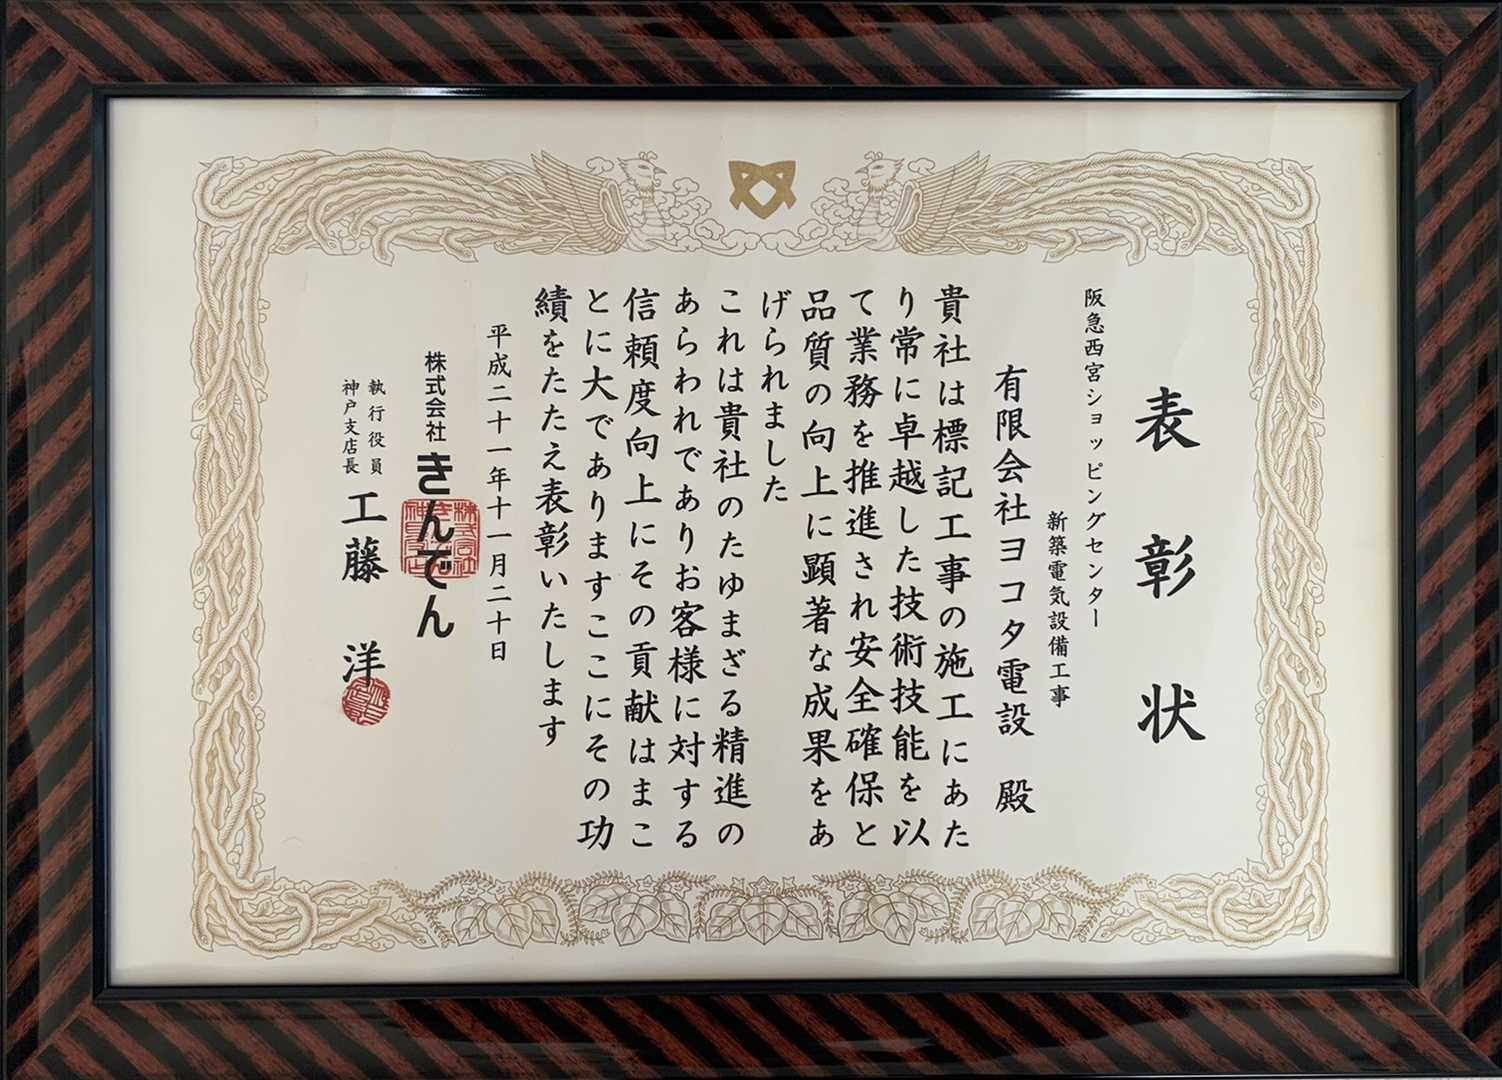 表彰状
阪急西宮ショッピングセンター
新築電気設備工事
有限会社ヨコタ電設 殿
貴社は標記工事の施工にあた
り常に卓越した技術技能を以
て業務を推進され安全確保と
品質の向上に顕著な成果をあ
げられました
これは貴社のたゆまざる精進の
あらわれでありお客様に対する
信頼度向上にその貢献はまこ
とに大でありますここにその功
績をたたえ表彰いたします
平成二十一年十一月二十日
株式会社きんでん
執行役員
神戸支店長
工藤 洋